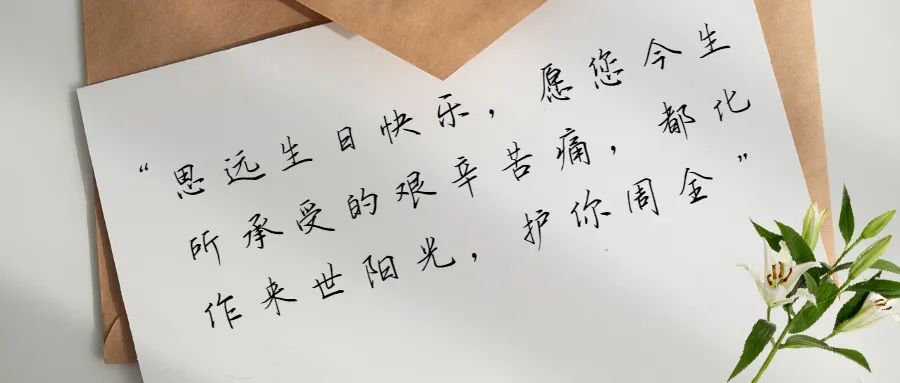 “思远生日快乐，愿您今生
所承受的艰辛苦痛，都化
作来世阳光，护你周全”